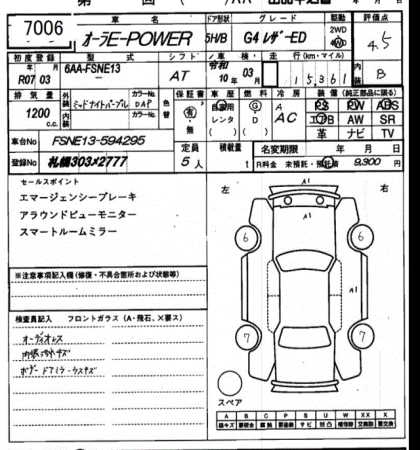 7006
車 名
ドア形状
グレード
駆動
評価点
オーラE-POWER
5H/B
G4 レザーED
2WD
4WD
4.5
初度登録
型 式
シフト
車 検
走 行 (km・マイル)
内装
R07/03
6AA-FSNE13
AT
令和
10年 03月
15,361
B
排 気 量
外装
色替
カラーNo.
内装
カラーNo.
保証書
車 歴
燃 料
冷 房
装 備 (純正品部に限る)
1200
c.c.
ミッドナイトパープル
DAP
有・無
自家用
レンタ
( )
G
D
( )
AC
PS PW ABS
エアB AW SR
革 ナビ TV
車台No
FSNE13-594295
定員
5 人
積載量
t
名変期限 年 月 日
登録No
札幌303メ2777
R料金 未預託・預託済 9,300 円
セールスポイント
エマージェンシーブレーキ
アラウンドビューモニター
スマートルームミラー
左
右
A1
6
6
A1
7
7
スペア
※注意事項記入欄(修復・不具合箇所および状態等)
検査員記入 フロントガラス(A・飛石、X要ス)
オーディオレス
内張ハガキズ
ボデー ドアミラーウスキズ
A B C P S U W X XX
線キズ 要鈑金 腐 触 要塗装 サ ビ 凹 凸 補修跡 要交換 交換済